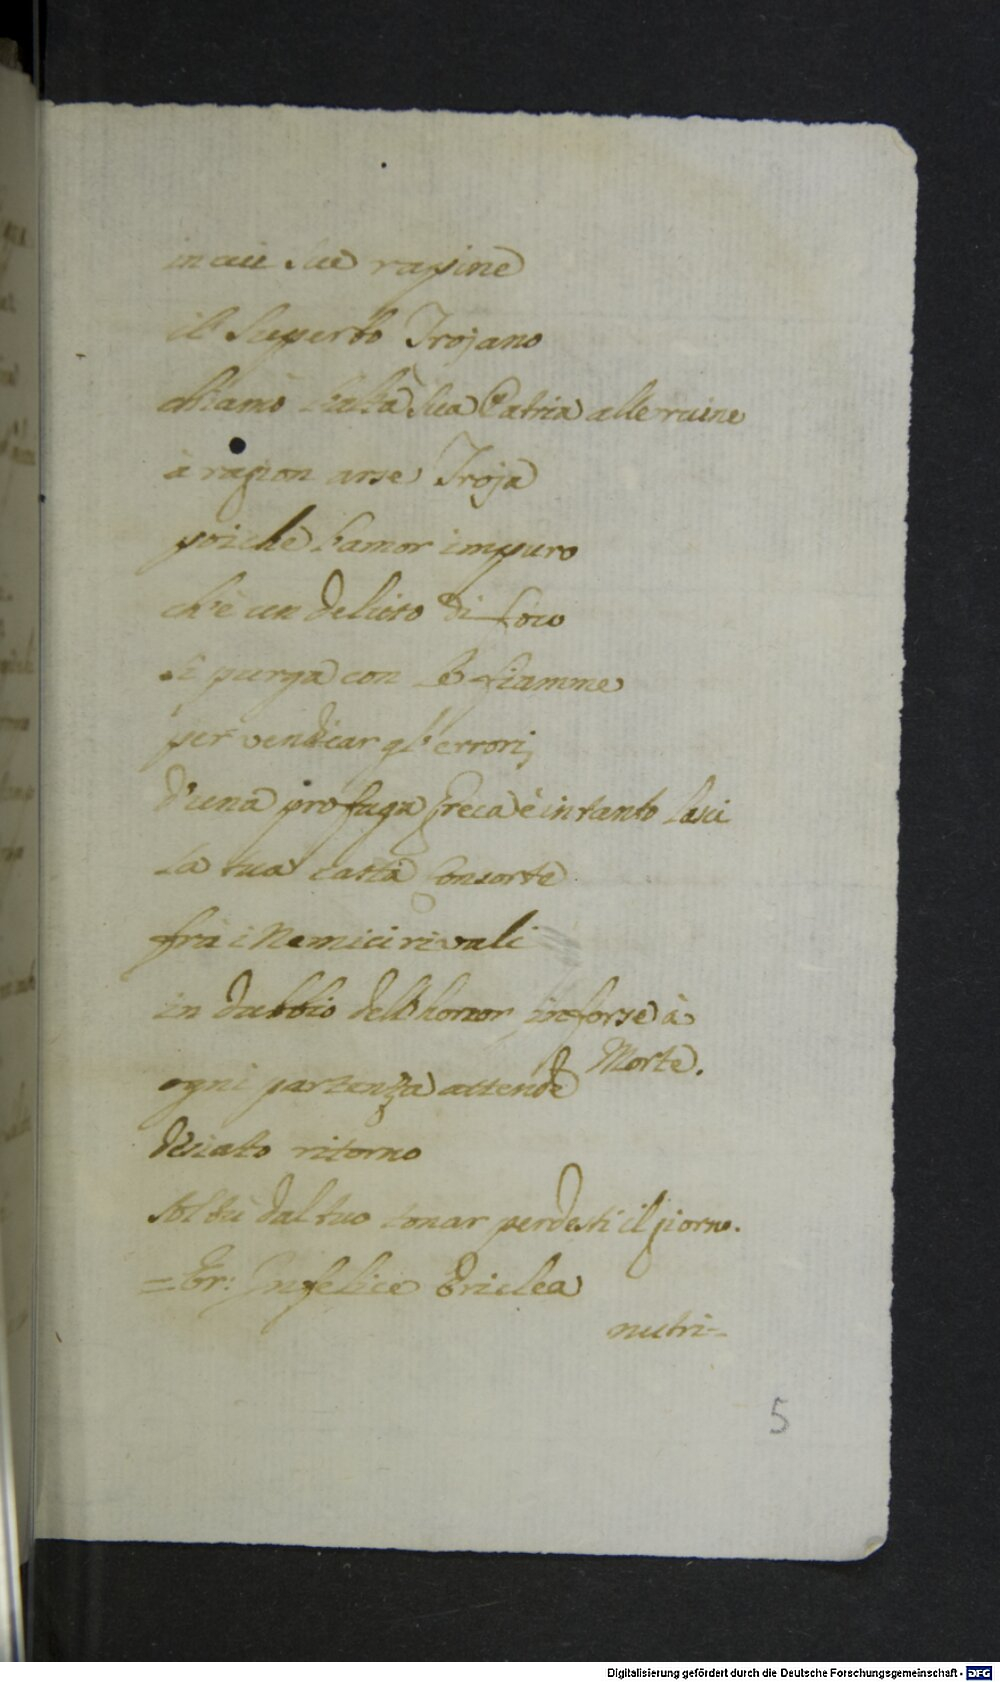 in cui sue rapine
il superbo Trojano
chiamò l'alta sua Patria alle ruine
à ragion arse Troja
poiche l'amor impuro
ch'è un delicto di foco
si purga con le fiamme
per vendicar gl'errori,
d'una profuga greca è intanto lasci
la tua casta Consorte
frà i Nemici rivali
in dubbio dell'honor in forse à
Morte.
ogni partenza attende
desiato ritorno
sol tù dal tuo tonar perdesti il giorno.
= Er: Infelice Ericlea
nutri-
5
Digitalisierung gefördert durch die Deutsche Forschungsgemeinschaft - DFG